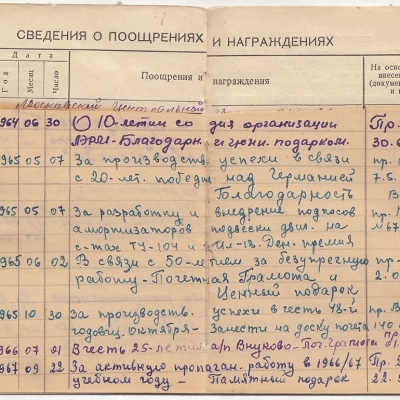 СВЕДЕНИЯ О ПООЩРЕНИЯХ И НАГРАЖДЕНИЯХ
Дата
Год Месяц Число
Поощрения и награждения
На основ
внесе
(документ
и н
Московский
1964 06 30 10-летием со дня организации Пр.
ЛЭРМ-Благодарн. и ценн. подарком. 30.6
1965 05 07 За производств. успехи в связи пр.
с 20-лет. победы над Германией 7.5.
Благодарность
1965 05 07 За разработку и внедрение подкосов
амортизаторов подвески двиг. на №67
с-тах ТУ-104 и Ил-18. Ден. премия
1965 06 02 В связи с 50-летием за безупречную пр.
работу - Почетная Грамота и 2.0
Ценный подарок
1965 10 30 За производств. успехи в честь 48-й
годовщ. Октября - Занести на доску почета 140
1966 07 01 В честь 25-летия а/п Внуково - Поч. Грамота
1967 09 22 За активную пропаган. работу в 1966/67 Пр.
учебном году - Памятный подарок 22.